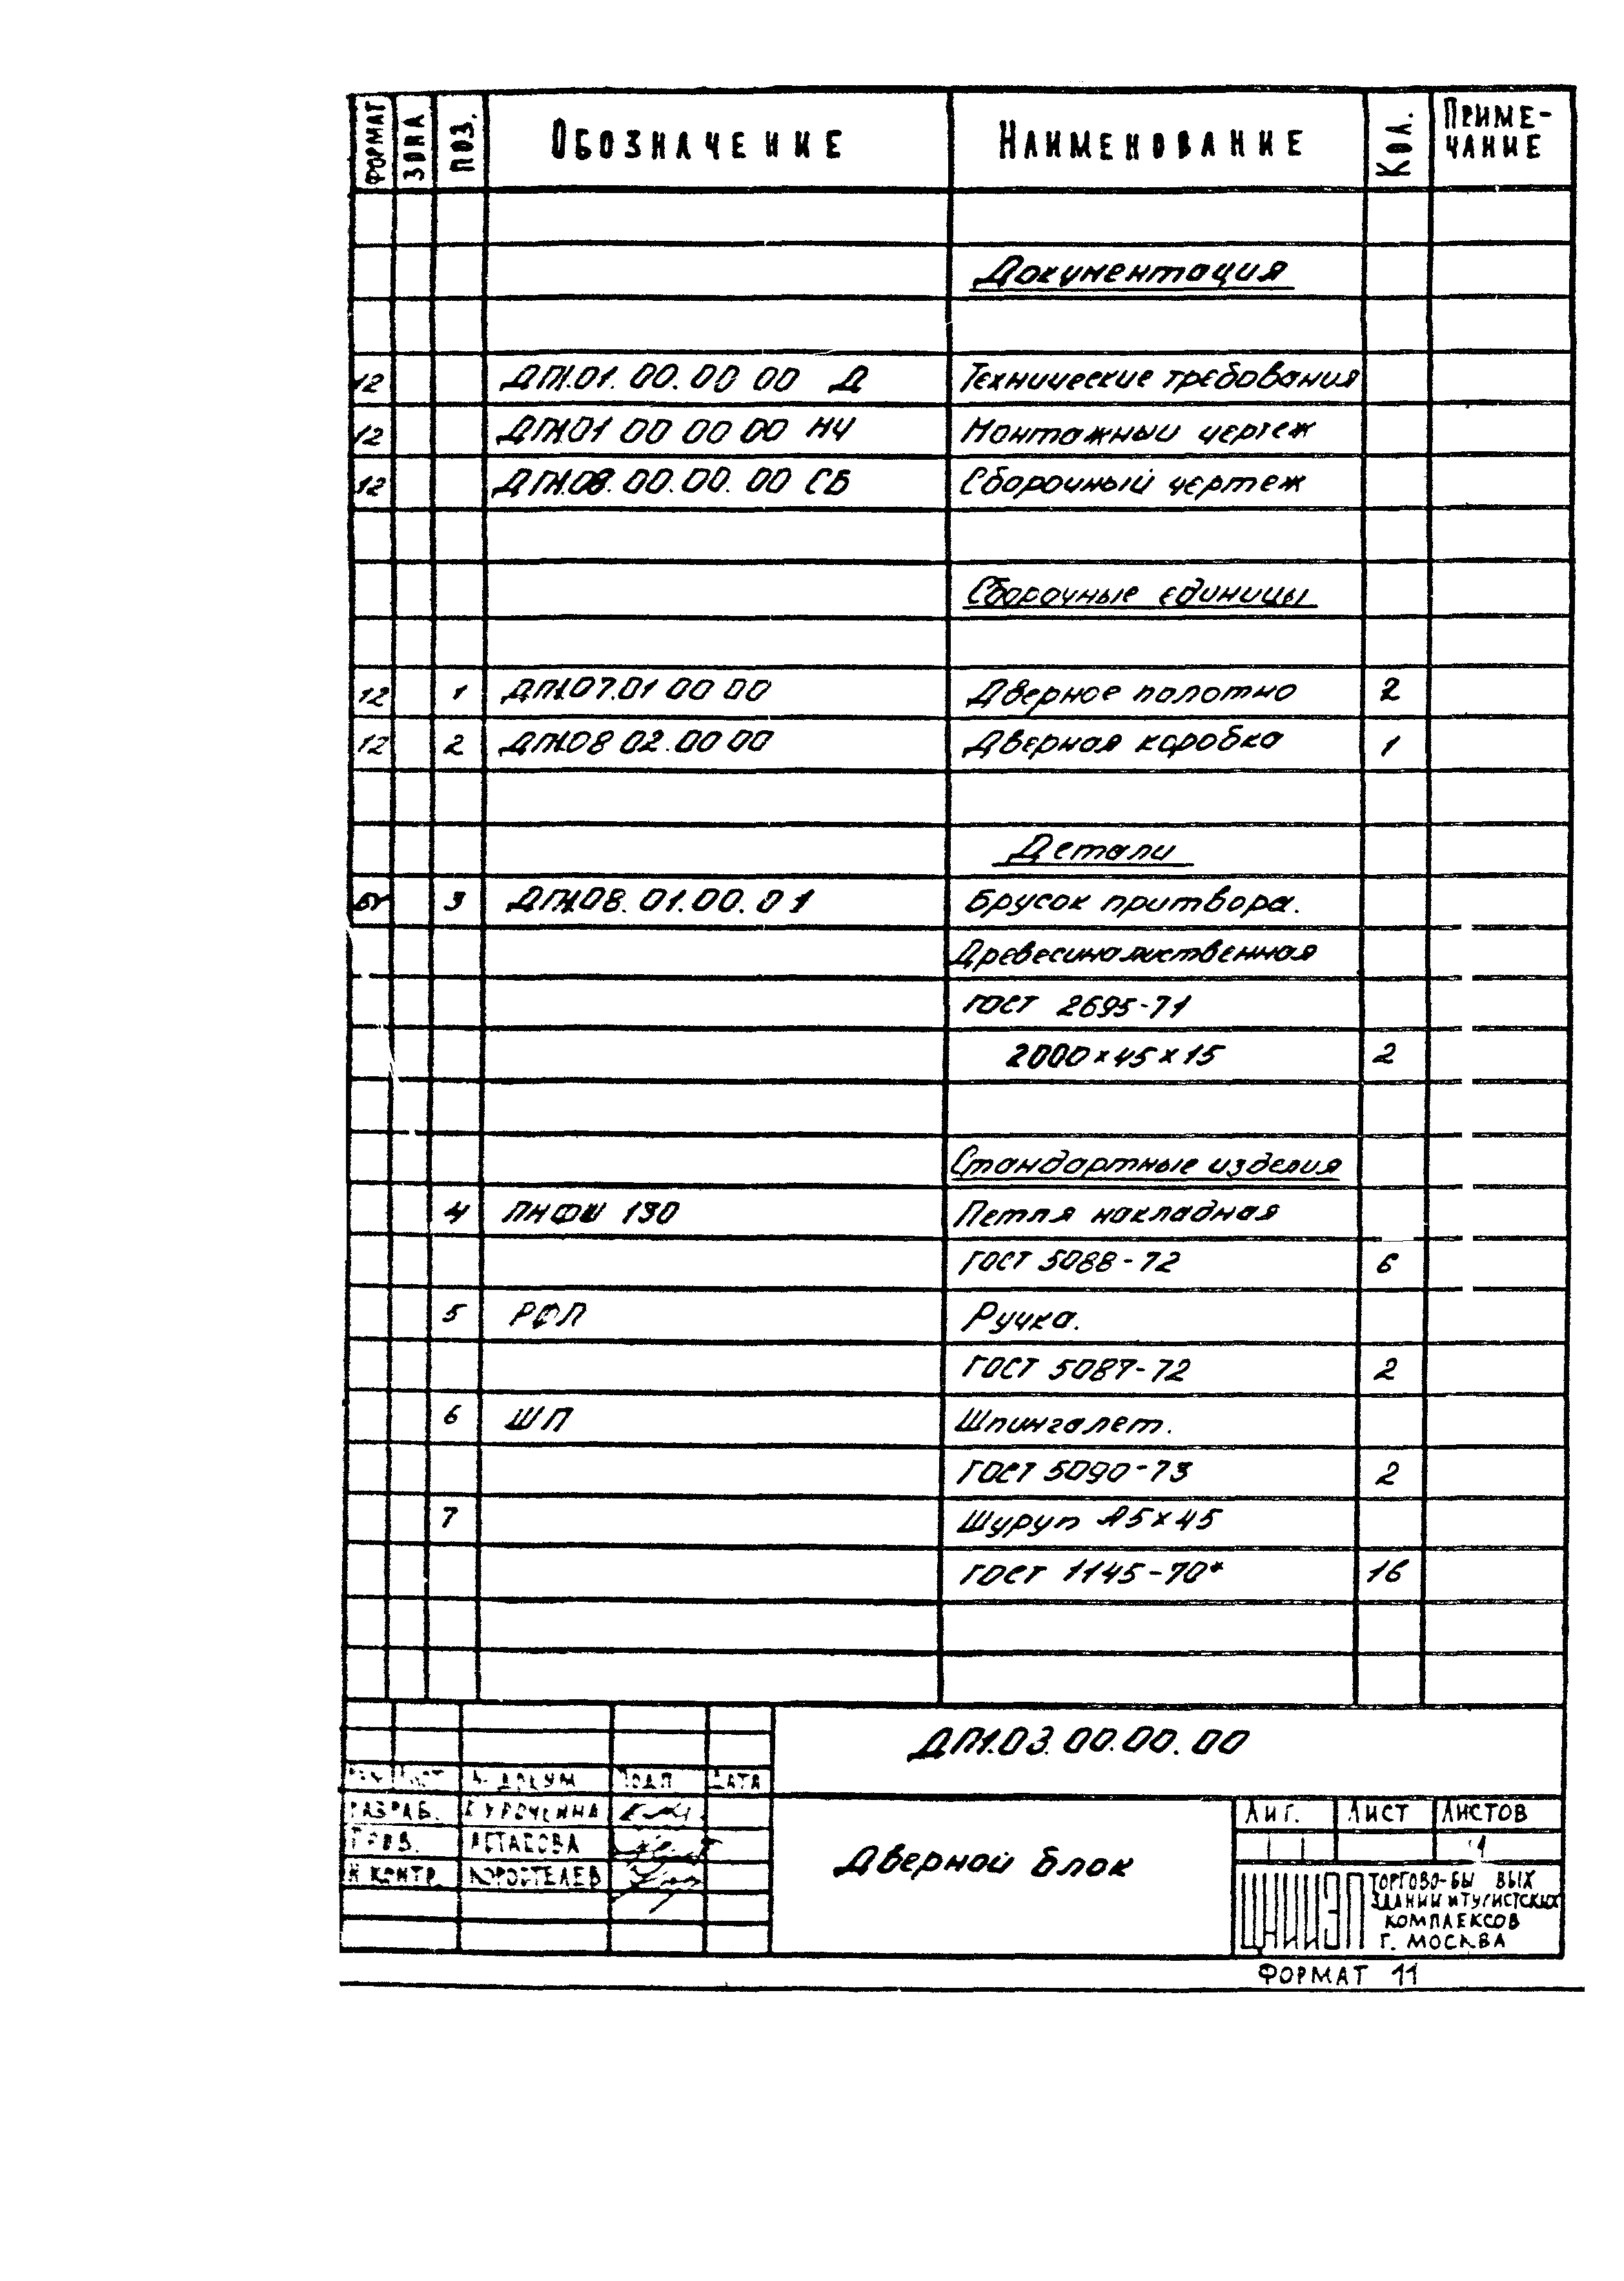 ФОРМАТ ЗОНА ПОЗ. ОБОЗНАЧЕНИЕ НАИМЕНОВАНИЕ КОЛ. ПРИМЕ-
ЧАНИЕ
Документация
12 ДП1.01.00.00 00 Д Технические требования
12 ДП1.01 00 00 00 МЧ Монтажный чертеж
12 ДП1.08.00.00.00 СБ Сборочный чертеж
Сборочные единицы
12 1 ДП1.07.01 00 00 Дверное полотно 2
12 2 ДП1.08 02.00 00 Дверная коробка 1
Детали
БЧ 3 ДП1.08.01.00.01 Брусок притвора.
Древесина лиственная
ГОСТ 2695-71
2000×45×15 2
Стандартные изделия
4 ПНФШ 130 Петля накладная
ГОСТ 5088-72 6
5 РФП Ручка.
ГОСТ 5087-72 2
6 ШП Шпингалет.
ГОСТ 5090-73 2
7 Шуруп 5×45
ГОСТ 1145-70* 16
ДП1.03.00.00.00
ЛИСТ № ДОКУМ ПОДП ДАТА
РАЗРАБ. КУРОЧКИНА
ПРОВ.
Н КОНТР. КОРОСТЕЛЕВ
Дверной блок
ЛИТ. ЛИСТ ЛИСТОВ
1
ЦНИИЭП
ТОРГОВО-БЫ ВЫХ
ЗДАНИЙ И ТУРИСТСКИХ
КОМПЛЕКСОВ
Г. МОСКВА
ФОРМАТ 11